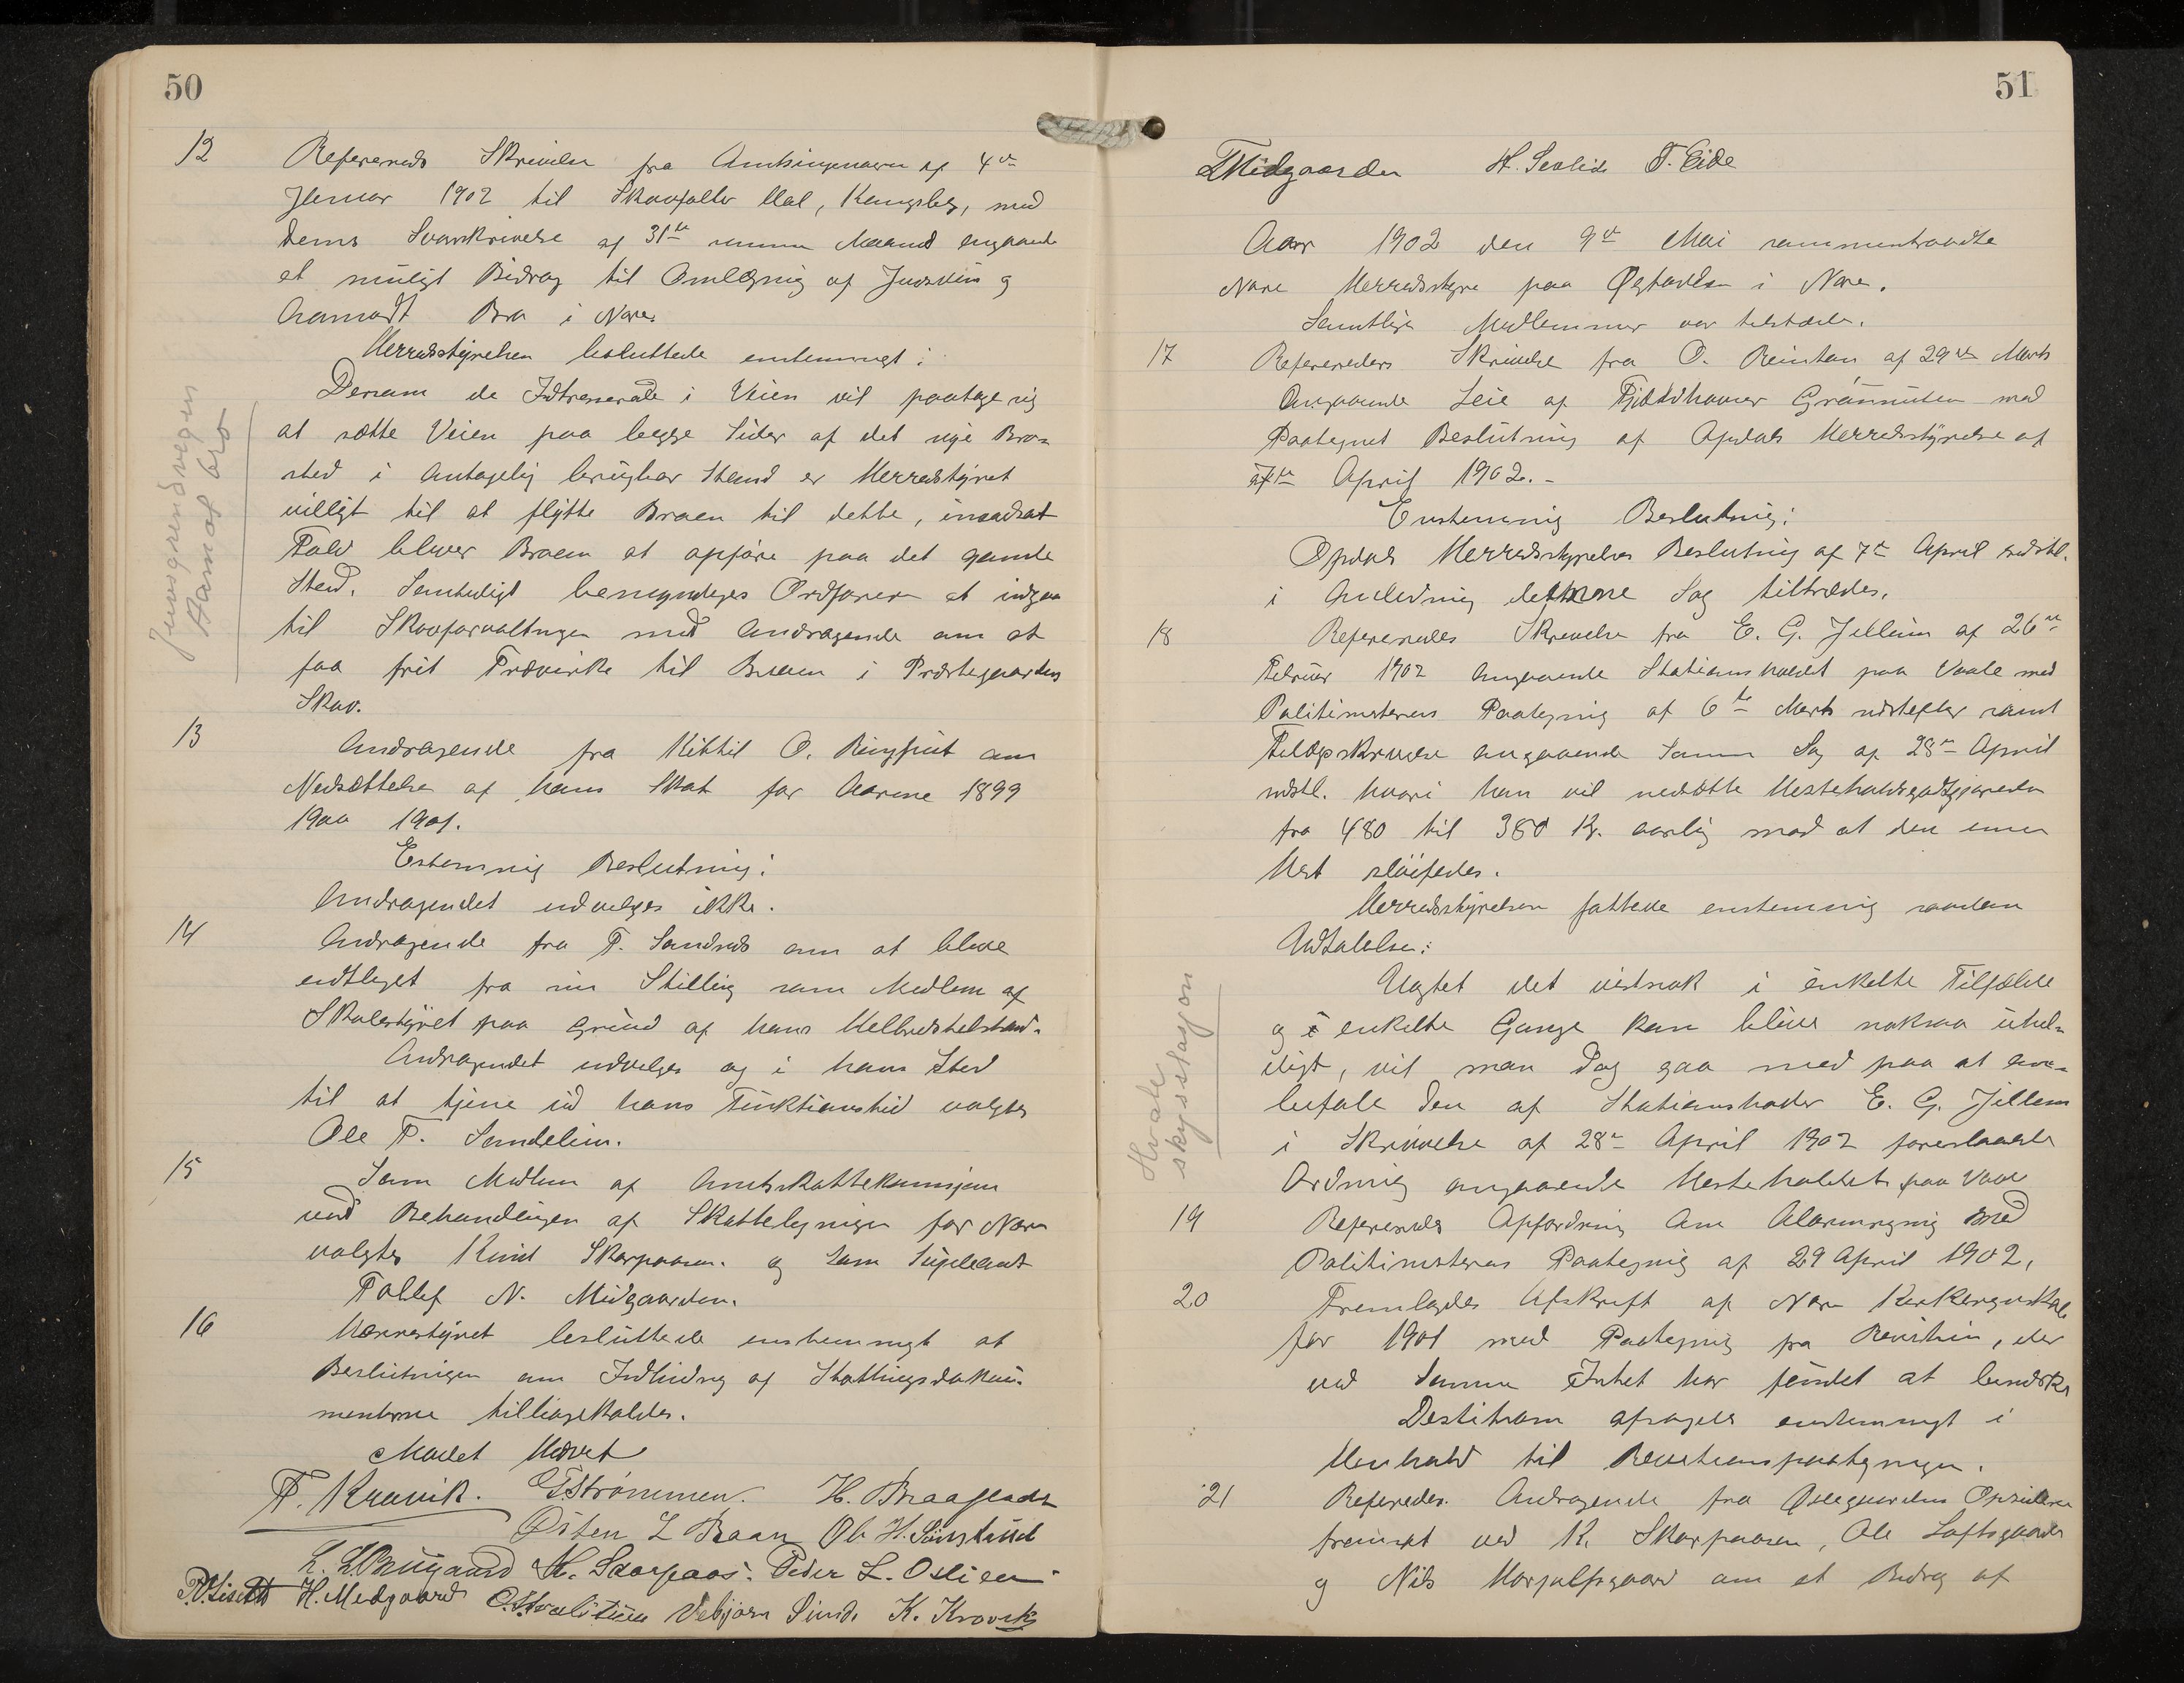 50
12 Refereredes Skrivelse fra Amtsingeniøren af 4de
Januar 1902 til Skovfoller Kongsberg, med
dennes Svarskrivelse af 31te samme Maaned angaaende
et muligt Bidrag til Omlægning af
Aamodt Bro i Nore.
Herredsstyrelsen besluttede enstemmigt:
Dersom de Intresserede i Veien vil paatage sig
at sætte Veien paa begge Sider af det nye Bro-
sted i antagelig brugbar Stand er Herredstyret
villigt til at flytte Broen til dette, i modsat
Fald bliver Broen at opføre paa det gamle
Sted. Samtidigt bemyndiges Ordføreren at indgaa
til Skovforvaltngen med Andragende om at
faa frit Trævirke til Broen i Præstegaardens
Skov.
Juvsgrendvegen
Aamot bro
13 Andragende fra Kittil O. Ringhut om
Nedsættelse af hans Skat for Aarene 1899
1900 1901.
Estemmig Beslutning:
Andragendet indvilges ikke.
14 Andragende fra T. Sandnes om at blive
entleget fra sin Stilling som Medlem af
Skolestyret paa Grund af hans Helbredstilstand.
Andragendet indvilges og i hans Sted
til at tjene ud hans Funktionstid valgtes
Ole T. Sandelien.
15 Som Medlem af Amtsskattekomisjonen
ved Behandlingen af Skatteligningen for Nore
valgtes Knut Skarpaasen. og som Supleant
Tollef N. Midgaarden.
16 Herredstyret besluttede enstemmigt at
Beslutningen om Indbinding af Skattingsdokui-
mentrne tilbagekaldes.
Mødet Hævet
T. Kravik. T Strømmen. H. Braagaadt
Østen L Braan Ole H. Sønstrud
L. L. Brugaard K. Skarpaas. Peder L. Oslien
H. Medgaard Vebjørn Simd. K. Kravik
51
T Midgaarden H. Seslid T. Eide
Aar 1902 den 9de Mai sammentraadte
Nore Herredsstyre paa i Nore.
Samtlige Medlemmer var tilstæde.
17 Refereredes Skrivelse fra O. Reinton af 29de Marts
Angaaende Leie af Fjeldthavner Grønnuten med
Paategnet Beslutning af Opdals Herredsstyrelse af
7de April 1902.-
Enstemmig Beslutning:
Opdals Herredsstyrelses Beslutning af 7de April sidstl.
i Anledning denne Sag tiltrædes.
18 Refereredes Skrivelse fra E. G. Jellum af 26de
Februar 1902 angaaende Stationsholdet paa Vaale med
Politimesterens Paategning af 6te Marts næstefter samt
Tillægsskrivelse angaaende samme Sag af 28de April
sidstl. hvori han vil nedsætte Hesteholdsgodtgjørelsen
fra 480 til 380 Kr. aarlig mod at den ene
Hest sløifedes.
Herredsstyrelsen fattede enstemmig saadan
Udtalelse:
Uagtet det vistnok i enkelte Tilfælde
og i enkelte Gange kan blive noksaa uhel-
digt, vil man Dog gaa med paa at anv-
befale den af Stationsholder E. G. Jellum
i Skrivelse af 28de April 1902 foreslaaede
Ordning angaaende Hesteholdet paa Vaale
Hvale
skysstasjon
19 Refereredes Opfordring om Alarmering med
Politimesterens Paategning af 29 April 1902.
20 Fremlagdes Afskrift af Nore Kirkeregnskab
for 1901 med Paategning fra Revision, der
ved Samme Intet har fundet at bemærke
Decition afsagdes enstemmigt i
Henhold til Revisionspaategningen.
21 Referedes Andragende fra Opsidere
fremsat ved K. Skarpaasen, Ole Loftsgaarden
og Nils Horjulfsgaard om et Bidrag af